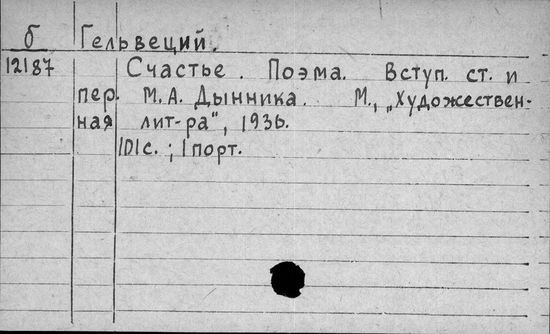 б Гельвеций.
12187 Счастье. Поэма. Вступ. ст. и
пер. М.А. Дынника. М., „Художествен-
ная лит-ра", 1936.
101с.; 1 порт.